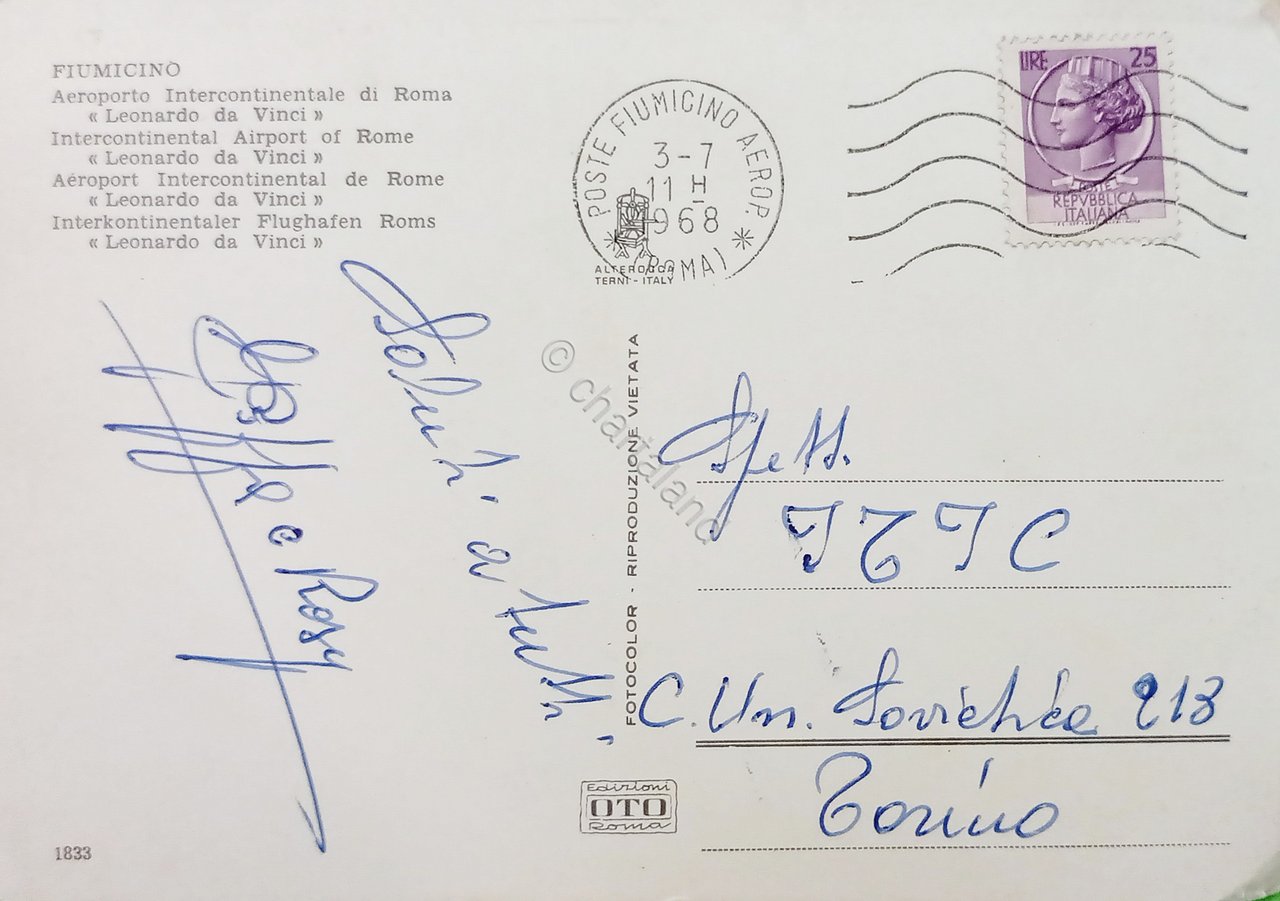 FIUMICINO
Aeroporto Intercontinentale di Roma
« Leonardo da Vinci »
Intercontinental Airport of Rome
« Leonardo da Vinci »
Aéroport Intercontinental de Rome
« Leonardo da Vinci »
Interkontinentaler Flughafen Roms
« Leonardo da Vinci »
POSTE FIUMICINO AEROP.
3-7
11 H
1968
(ROMA)
LIRE 25
POSTE
REPVBBLICA
ITALIANA
ALTEROCCA
TERNI - ITALY
Saluti a tutti
e Rosy
© chartaland
FOTOCOLOR - RIPRODUZIONE VIETATA
Spett.
ITIC
C. Un. Sovietica 213
Torino
Edizioni
OTO
Roma
1833